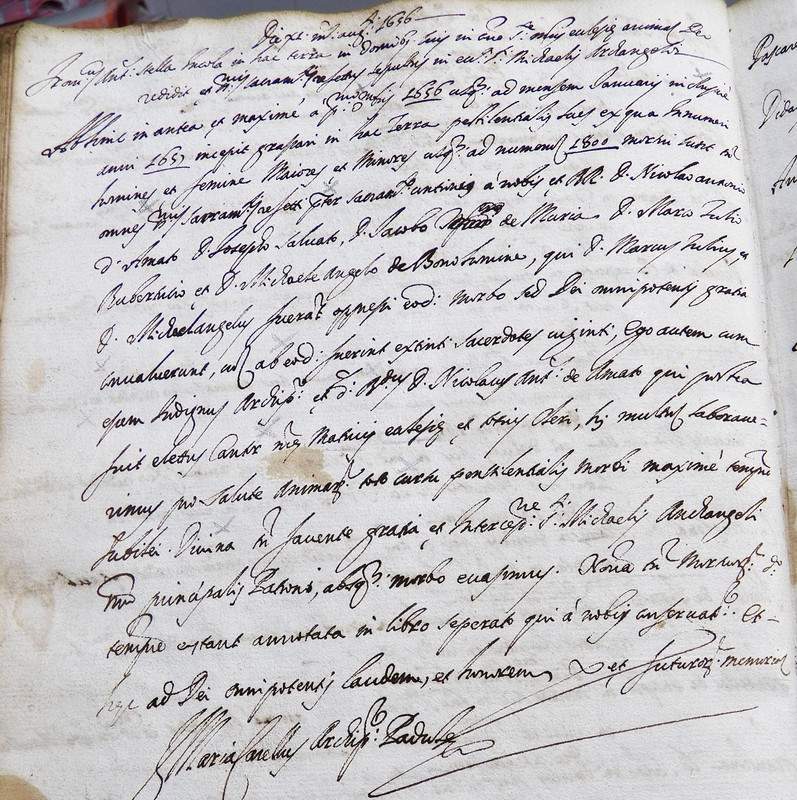 Die xi m: augti 1656
Franus Ant: Stella Incola in hac terra in domibus suis in cne S: mris ecclesię animam Deo
redidit et mris sacramtis refectus sepultus in ecc: S: Michaelis Archangeli
Ab hinc in antea et maximè à p: di mensis 1656 usq; ad mensem Januarii inclusivè
anni 1657 incepit grassari in hac Terra pestilentialis lues ex qua Innumeri
homines et femine Maiores et Minores usq; ad numerum 1800 mortui sunt
omnes mris sacramtis refecti pter sacramtm à nobis et RR. D. Nicolao antonio
d'Amato D. Joseph Salvato, D. Jacobo de Maria D. Marco Tulio
Bubertucio et D. Michaele Angelo de Bonohomine, qui D. Marcus Tulius, et
D. Michaelangelus fuerat oppressi eod: morbo sed Dei omnipotentis gratia
convaluerunt, ab eod: fuerint extinti sacerdotes viginti, Ego autem cum
Indignus Archipr et D. Nicolaus Ant: de Amato qui postea
fuit electus Cantr Matricis ecclesię et totius Cleri, hi multum laborave=
rimus pro salute Animar: toto cursu pestilentialis morbi maximè tempore
Jubilei. Divina tn favente gratia et Interceone S: Michaelis Archangeli
nri principalis Patroni, absq; morbo evasimus. Noĩa tn Mortuor: do:
tempore extant annotata in libro seperato qui à nobis conservatr. Et
hęc ad Dei omnipotentis laudem, et honorem et futuror: memoriam
Maria Archipr: Padule